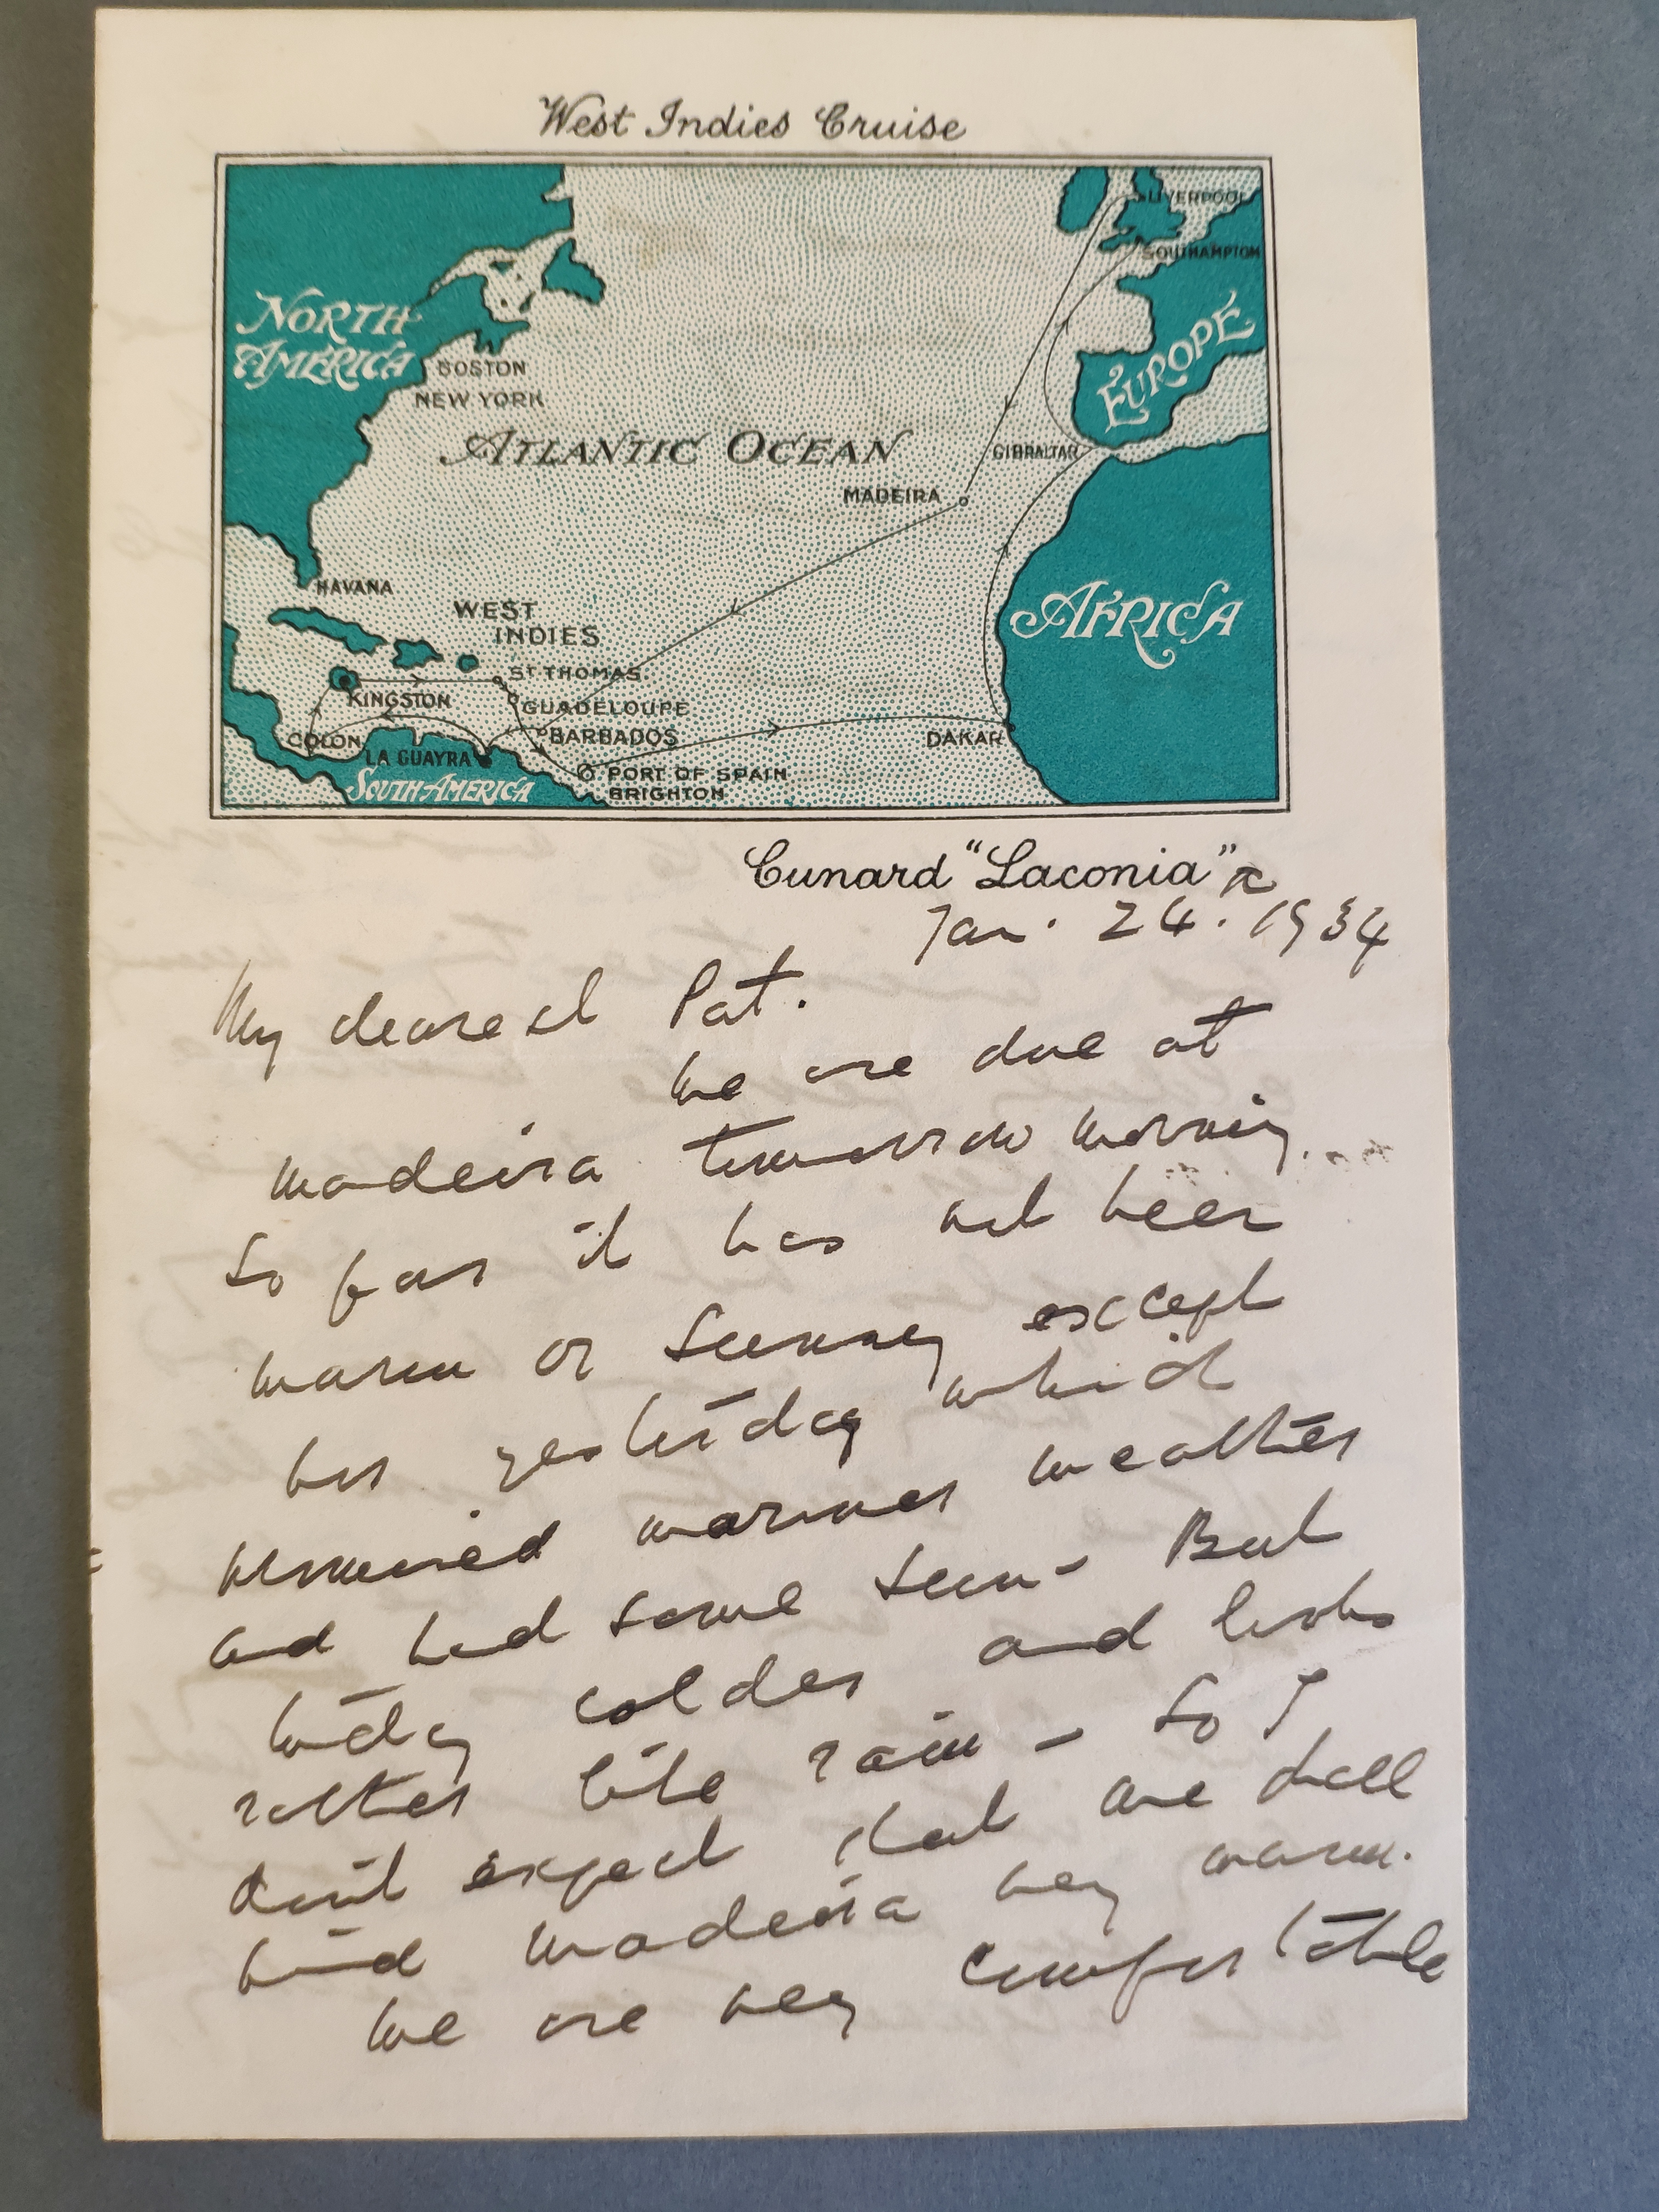 West Indies Cruise
LIVERPOOL
SOUTHAMPTON
NORTH
AMERICA
EUROPE
BOSTON
NEW YORK
ATLANTIC OCEAN
GIBRALTAR
MADEIRA
HAVANA
WEST
INDIES
AFRICA
ST THOMAS
KINGSTON
GUADELOUPE
COLON
BARBADOS
DAKAR
LA GUAYRA
PORT OF SPAIN
SOUTH AMERICA
BRIGHTON
Cunard "Laconia"
Jan. 24. 1934
My dearest Pat.
We are due at
Madeira tomorrow morning.
So far it has not been
warm or sunny except
for yesterday which
promised warmer weather
and had some sun - But
today colder and looks
rather like rain - So I
don't expect that we shall
find Madeira very warm.
We are very comfortable